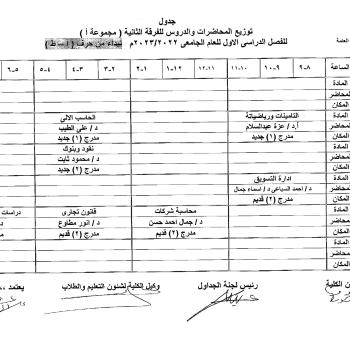 جدول
توزيع المحاضرات والدروس للفرقة الثانية ( مجموعة أ )
للفصل الدراسى الاول للعام الجامعى ٢٠٢٣/٢٠٢٢م تبداء من حرف ( أ - ط )
العامة
الساعة ٨-٩ ٩-١٠ ١٠-١١ ١١-١٢ ١٢-١ ١-٢ ٢-٣ ٣-٤ ٤-٥ ٥-٦
المادة التامينات ورياضياتة الحاسب الالى
المحاضر أ.د/ عزة عبدالسلام د/ على الطيب
المكان مدرج (١) جديد مدرج (١) جديد
المادة نقود وبنوك
المحاضر د/ محمود ثابت
المكان مدرج (٢) جديد
المادة ادارة التسويق
المحاضر د/ احمد السباعى / د/ اسماء جمال
المكان مدرج (٢) قديم
المادة محاسبة شركات قانون تجارى دراسات
المحاضر د/ جمال احمد حسن د/ انور مطاوع
المكان مدرج (٢) قديم مدرج (٢) قديم
ن الكلية رئيس لجنة الجداول وكيل الكلية لشئون التعليم والطلاب يعتمد ،،